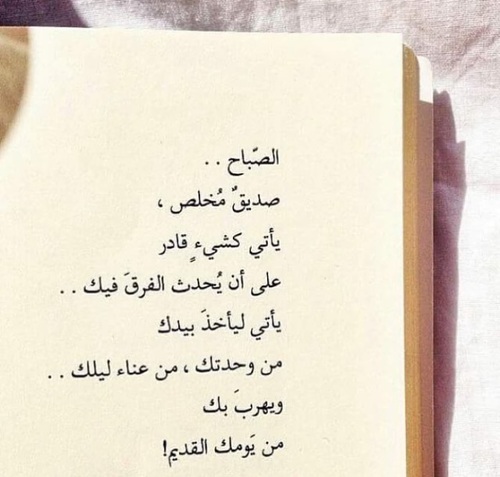 الصّباح . .
صديقٌ مُخلص ،
يأتي كشيءٍ قادر
على أن يُحدث الفرقَ فيك . .
يأتي ليأخذَ بيدك
من وحدتك ، من عناء ليلك . .
ويهربَ بك
من يَومك القديم!